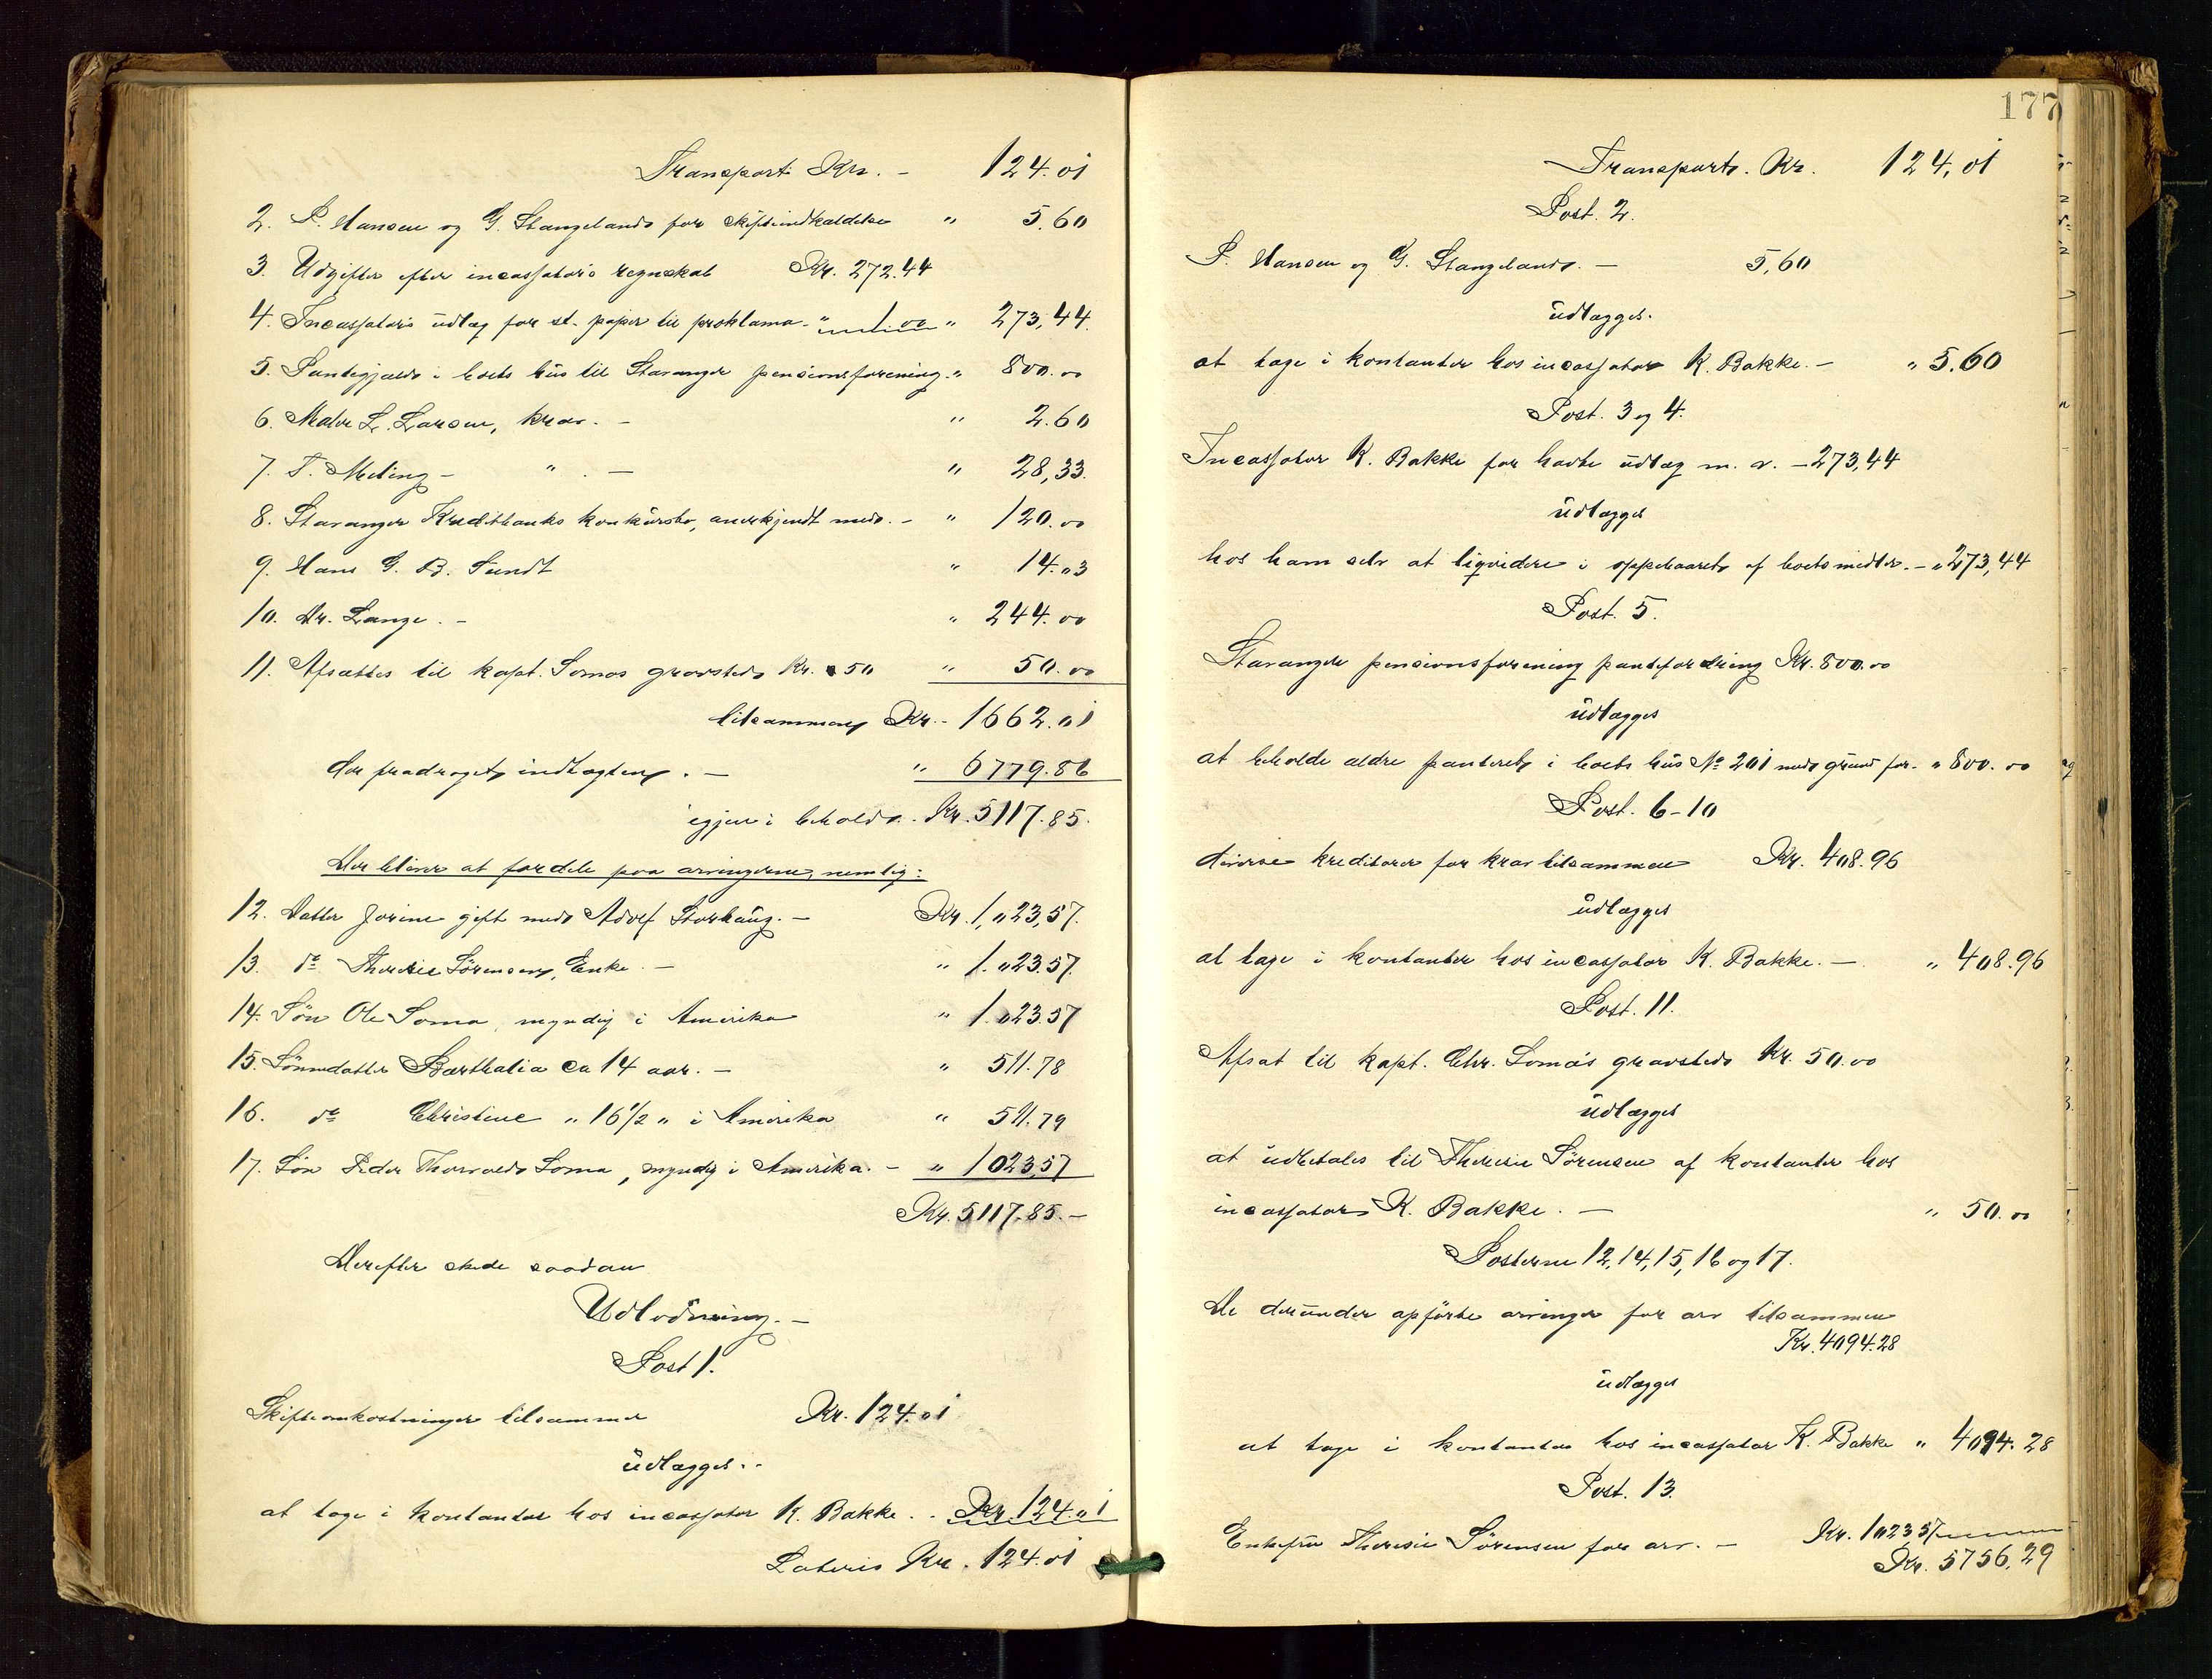 Transport Kr. - 124.01
2. P. Hansen og G. Stangeland for skifteindkaldelse " 5.60
3. Udgifter efter incassators regnskab Kr. 272.44
4. Incassators udlæg for st. papir til proklama - " 1.00 " 273,44
5. Pantegjæld i boets hus til Stavanger pensionsforening. " 800.00
6. Maler L. Larsen, krav. - " 2.60
7. T. Meling - " - " 28,33.
8. Stavanger Kreditbanks konkursbo, anerkjendt med. - " 120.00
9. Hans G. B. Sundt " 14.03
10. Dr. Lange. - " 244.00
11. Afsættes til kapt. Somas gravsted Kr. 50 " 50.00
tilsammen Kr. - 1662.01
der fradraget indtægten. - " 6779.86
igjen i behold. Kr. 5117.85.
Der bliver at fordele paa arvingerne, nemlig:
12. Datter Jorine gift med Adolf Storhaug. - Kr. 1,023,57.
13. do Theresie Sørensen, Enke. - " 1.023.57
14. Søn Ole Soma, myndig i Amerika " 1.023.57
15. Sønnedatter Barthalia ca 14 aar. - " 511.78
16. do Christine " 16 1/2 " i Amerika " 511.79
17. Søn Peder Thorvald Soma, myndig i Amerika. - " 1023,57
Kr. 5117.85. -
Derefter skede saadan
Udlodning. -
Post 1.
Skifteomkostninger tilsammen Kr. 124.01
udlægges. -
at tage i kontanter hos incassator K. Bakke. - Kr. 124.01
Lateris Kr. 124.01
177
Transport. Kr. 124,01
Post. 2.
P. Hansen og G. Stangeland. - 5,60
udlægges.
at tage i kontanter hos incassator K. Bakke. - " 5.60
Post. 3 og 4.
Incassator K. Bakke for havte udlæg m. v. - 273,44
udlægges
hos ham selv at liqvidere i oppebaaret af boets midler. - " 273,44
Post. 5.
Stavanger pensionsforening pantefordring Kr. 800.00
udlægges
at beholde ældre panteret i boets hus No 201 med grund for. " 800.00
Post. 6-10
diverse kreditorer for krav tilsammen Kr. 408.96
udlægges
at tage i kontanter hos incassator K. Bakke. - " 408.96
Post. 11.
Afsat til kapt. Chr. Soma's gravsted Kr. 50.00
udlægges
at udbetales til Theresie Sørensen af kontanter hos
incassator K. Bakke. - " 50.00
Posterne 12, 14, 15, 16 og 17.
De derunder opførte arvinger for arv tilsammen
Kr. 4094.28
udlægges
at tage i kontanter hos incassator K. Bakke " 4094.28
Post. 13.
Enkefru Theresie Sørensen for arv. - Kr. 1023,57
Kr. 5756,29